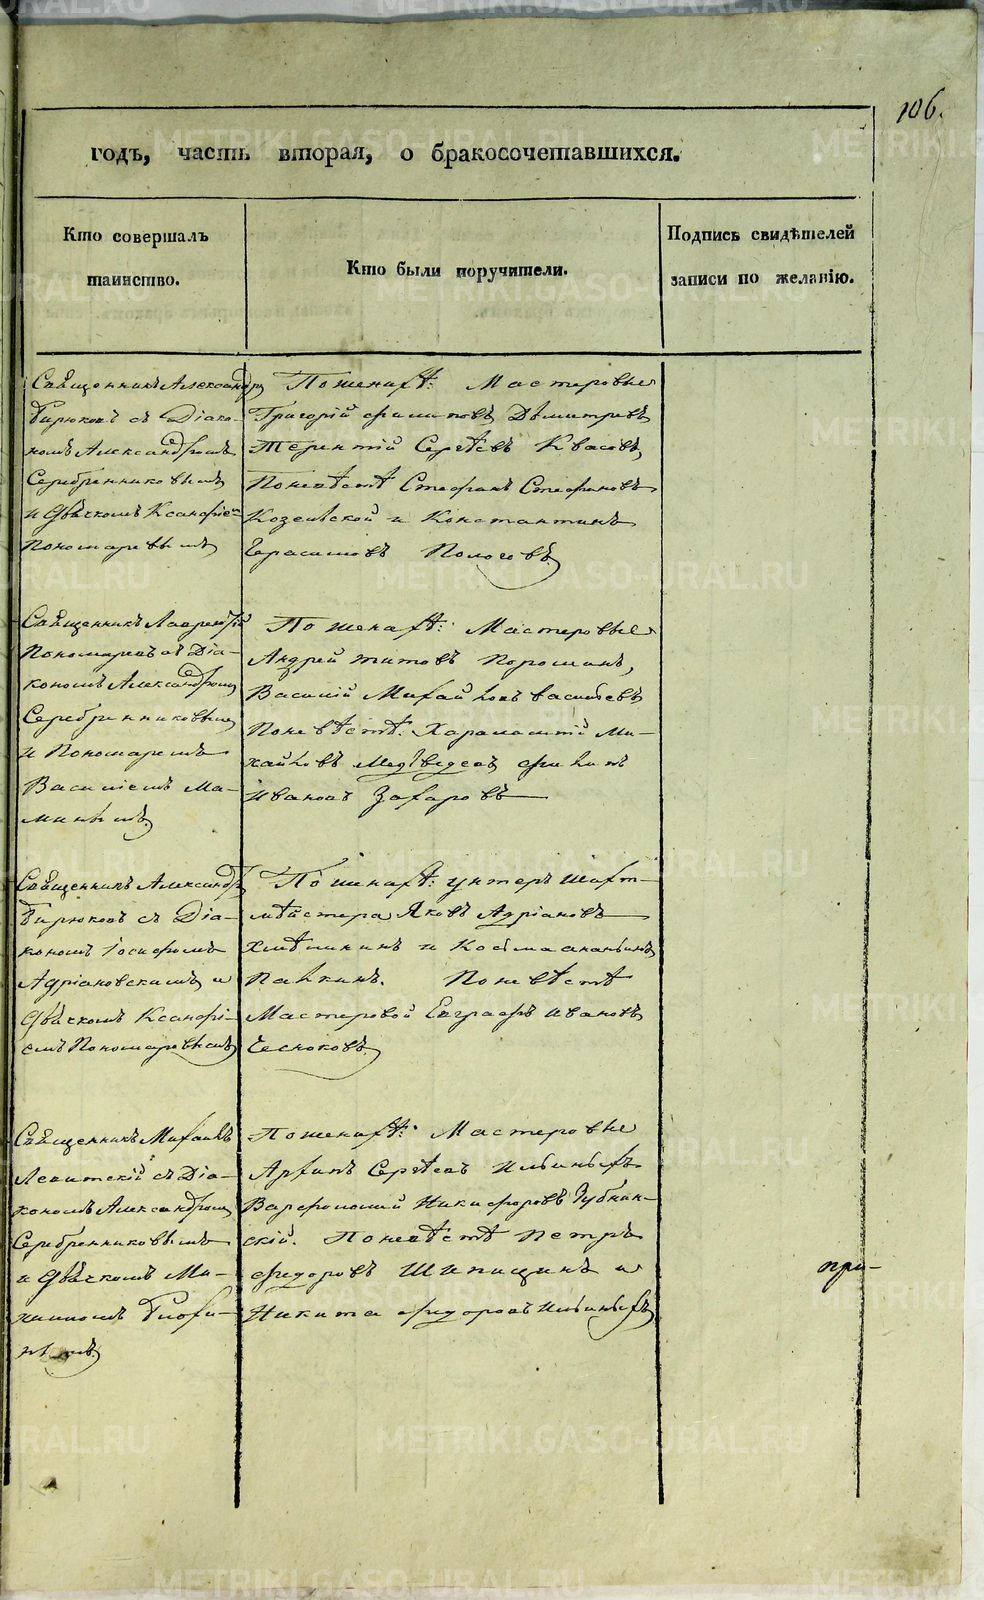 106.
годъ, часть вторая, о бракосочетавшихся.
Кто совершалъ
таинство.
Кто были поручители.
Подпись свидѣтелей
записи по желанію.
Священникъ Александръ
Бирюковъ съ Діако-
номъ Александромъ
Серебренниковымъ
и Дьячкомъ Ксанфіемъ
Пономаревымъ
По женихѣ: Мастеровые
Григорій Филиповъ Димитревъ
Терентій Сергѣевъ Квасовъ,
По невѣстѣ Стефанъ Стефановъ
Козевской и Константинъ
Герасимовъ Пологовъ.
Священникъ Лаврентій
Пономаревъ съ Діа-
кономъ Александромъ
Серебренниковымъ
и Пономаремъ
Василіемъ Ма-
минымъ.
По женихѣ: Мастеровые
Андрей Титовъ Порошинъ,
Василій Михайловъ Васильевъ
По невѣстѣ: Харлампій Ми-
хайловъ Медвѣдевъ Филипъ
Ивановъ Захаровъ
Священникъ Александръ
Бирюковъ съ Діа-
кономъ Іосифомъ
Адріановскимъ и
Дьячкомъ Ксанфі-
емъ Пономаревымъ
По женихѣ: унтеръ шахт-
мейстера Яковъ Адріановъ
Хмѣлининъ и Косьма Ананьинъ
Палкинъ. По невѣстѣ
Мастеровой Евграфъ Ивановъ
Чесноковъ.
Священникъ Михаилъ
Левитскій съ Діа-
кономъ Александромъ
Серебренниковымъ
и Дьячкомъ Ми-
По женихѣ: Мастеровые
Архипъ Сергѣевъ Ильиныхъ
Варфоломей Никифоровъ Губкин-
скій. По невѣстѣ Петръ
Федоровъ Шипицинъ и
Никита Федоровъ Ильиныхъ
при-
METRIKI.GASO-URAL.RU